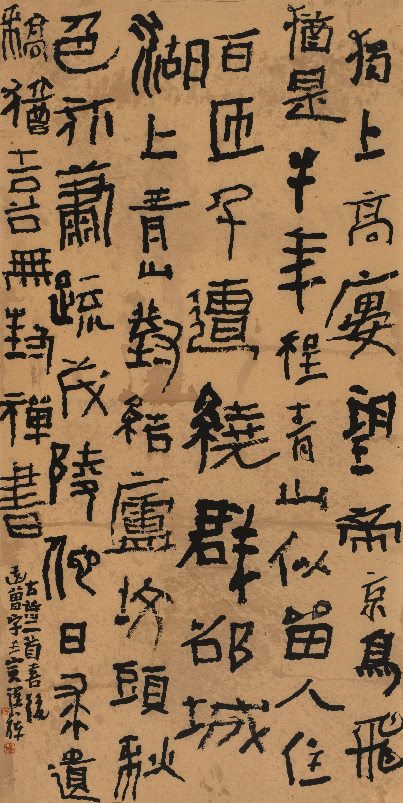 獨上高樓望帝京鳥飛
猶是半年程青山似留人住
百匝千遭繞群郡城
湖上青山對結廬墳頭秋
色亦蕭疏茂陵他日求遺
稿猶喜無封禪書
古詩二首喜後
曾字壬寅